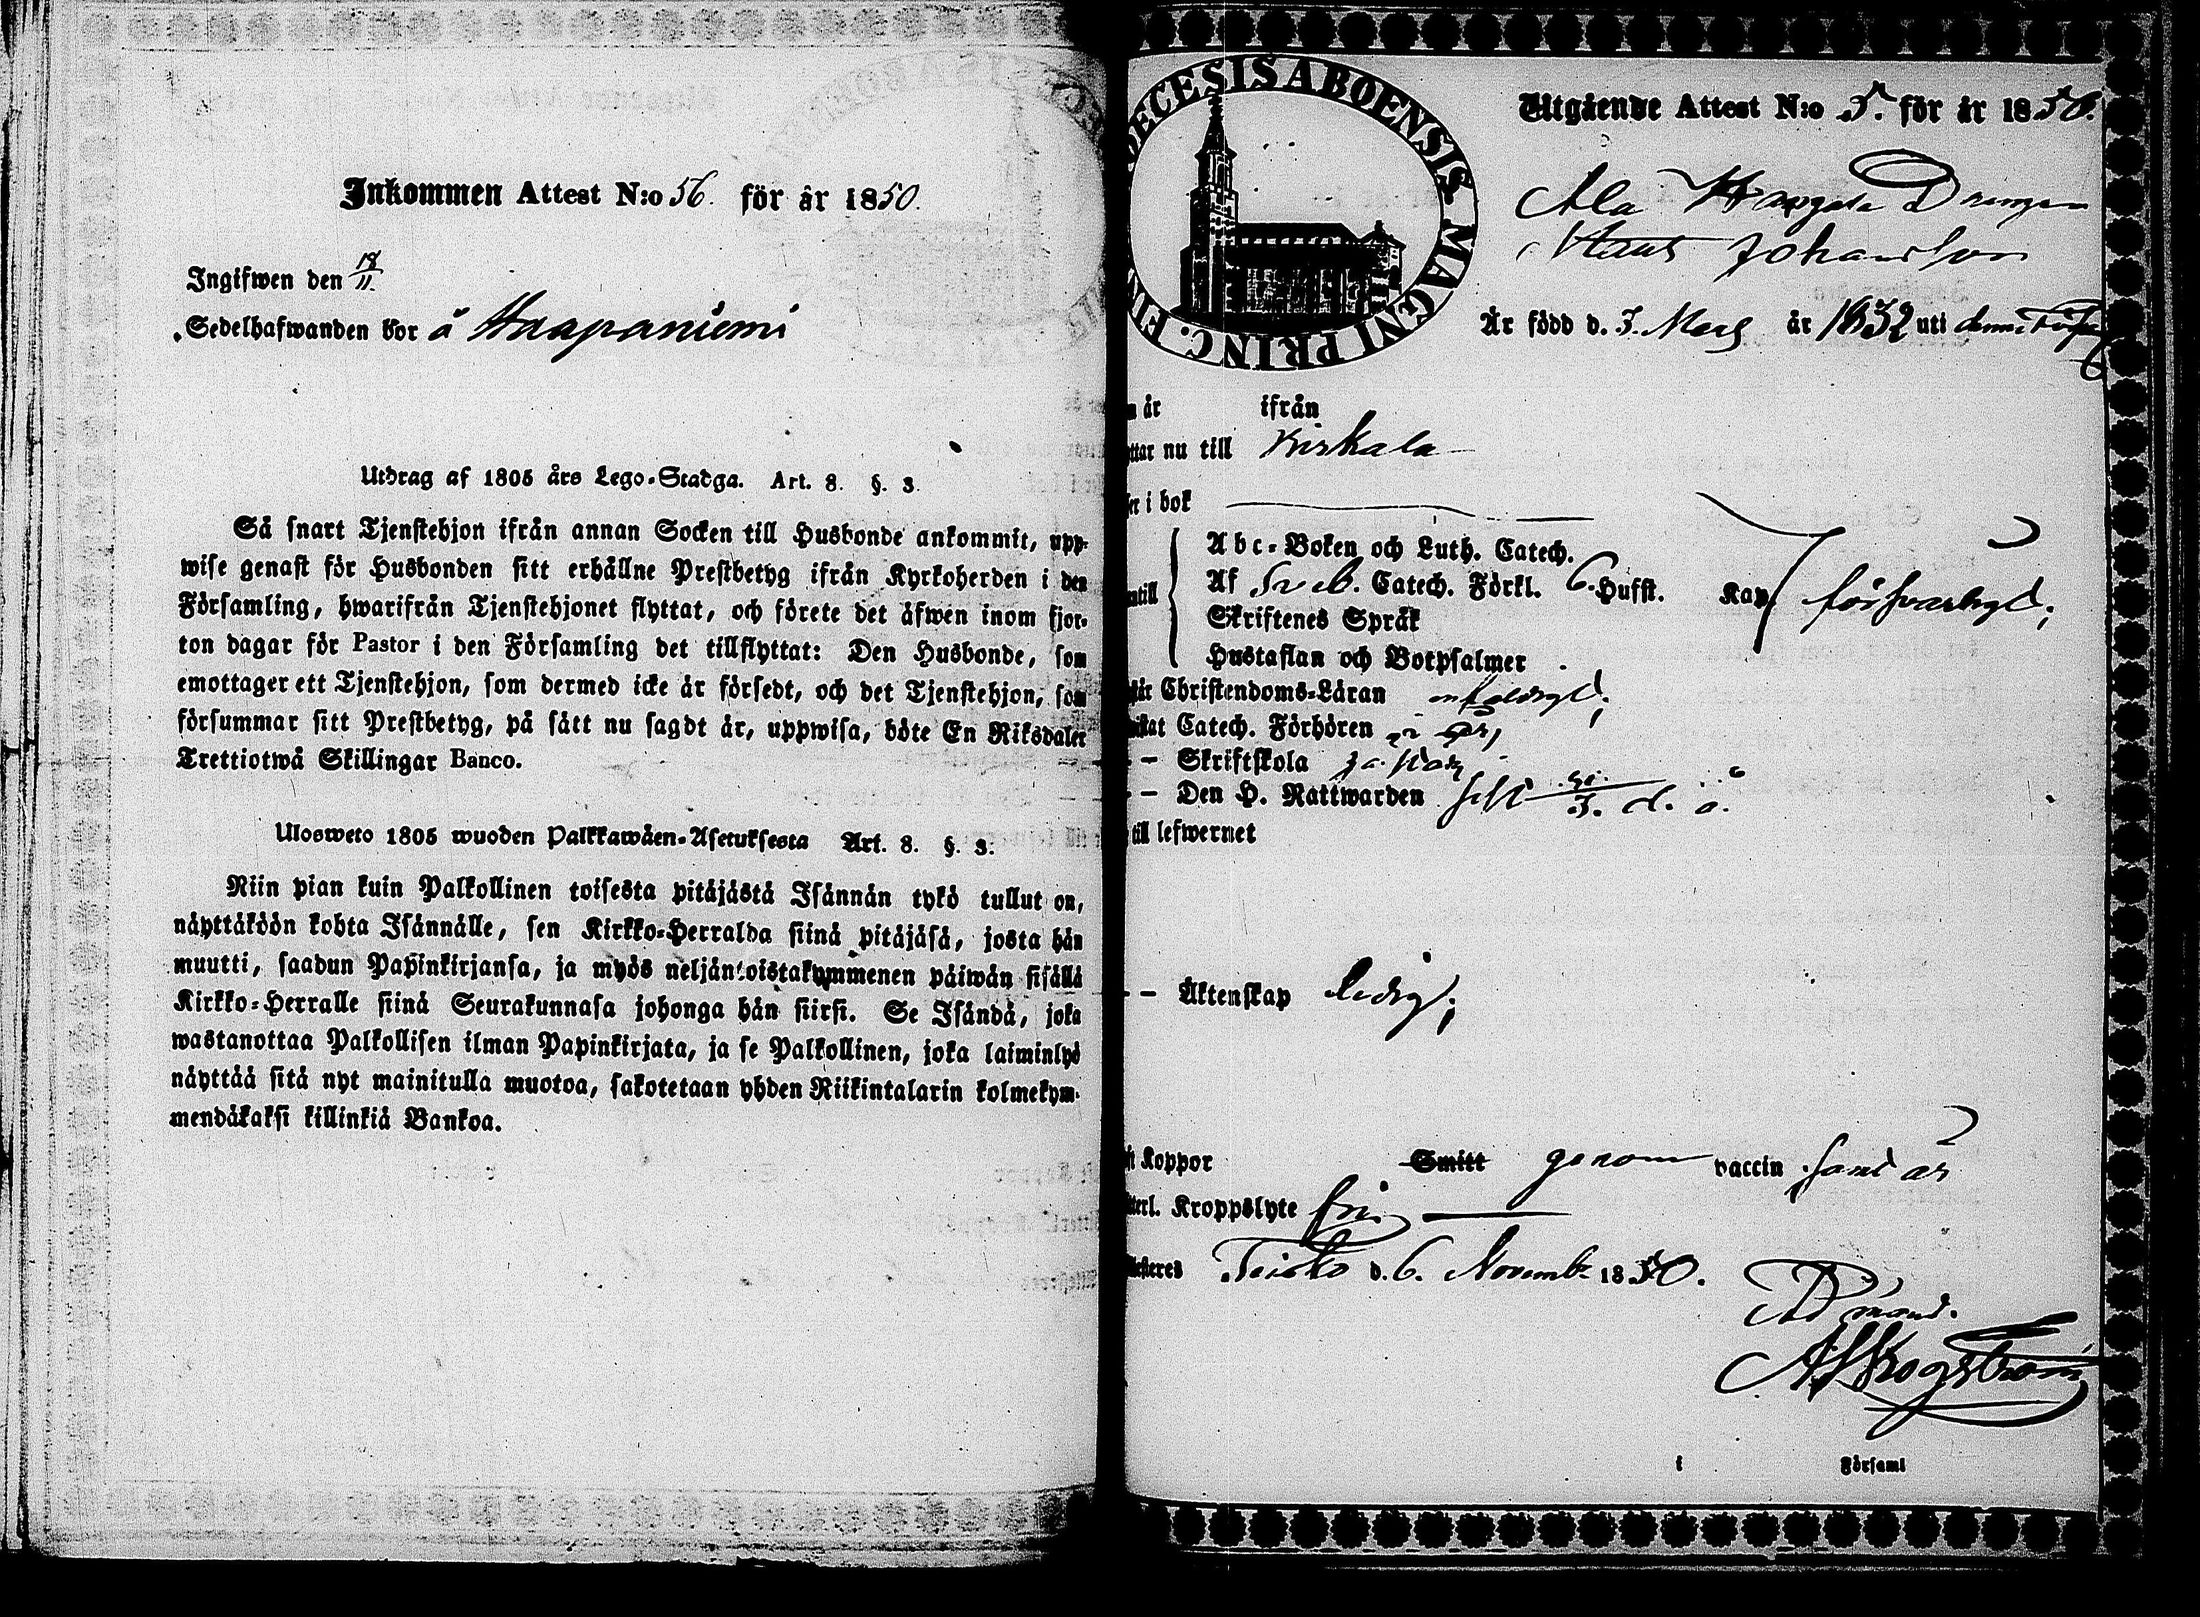 Inkommen Attest N:o 56. för år 1850.
Ingifwen den 18/11.
Sedelhafwanden bor å Haapaniemi
Utdrag af 1805 års Lego-Stadga. Art. 8. §. 3.
Så snart Tjenstehjon ifrån annan Socken till Husbonde ankommit, upp-
wise genast för Husbonden sitt erhållne Prestbetyg ifrån Kyrkoherden i den
Församling, hwarifrån Tjenstehjonet flyttat, och förete det äfwen inom fjor-
ton dagar för Pastor i den Församling det tillflyttat: Den Husbonde, som
emottager ett Tjenstehjon, som dermed icke är försedt, och det Tjenstehjon, som
försummar sitt Prestbetyg, på sätt nu sagdt är, uppwisa, böte En Riksdaler
Trettiotwå Skillingar Banco.
Ulosweto 1805 wuoden Palkkawäen-Asetuksesta Art. 8. §. 3.
Niin pian kuin Palkollinen toisesta pitäjästä Isännän tykö tullut on,
näyttäköön kohta Isännälle, sen Kirkko-Herralda siinä pitäjäsä, josta hän
muutti, saadun Papinkirjansa, ja myös neljäntoistakymmenen päiwän sisällä
Kirkko-Herralle siinä Seurakunnasa johonga hän siirsi. Se Isändä, joka
wastanottaa Palkollisen ilman Papinkirjata, ja se Palkollinen, joka laiminlyö
näyttää sitä nyt mainitulla muotoa, sakotetaan yhden Riikintalarin kolmekym-
mendäkaksi killinkiä Bankoa.
DECESIS ABOENSIS MAGNI PRINC. FIN
Utgående Attest N:o 5. för år 1850.
Ala Drengen
Johansson
Är född d. 3. Mars år 1832 uti denne
år ifrån
ttar nu till Kirkala
i bok
Abc-Boken och Luth. Catech.
Af Sveb. Catech. Förkl. 6. Hufst. Kap. försvarligt;
Skriftenes Språk
Hustaflan och Botpsalmer
Christendoms-Läran enfaldigt;
Catech. Förhören
-- Skriftskola
-- Den H. Nattwarden sist d. å.
till lefwernet
-- Äktenskap ledig;
Koppor Smitt genom vaccin samt är
terl. Kroppslyte fri.
Teisko d. 6. Novemb. 1850.
Ad mand.
A Skogström
i Församl